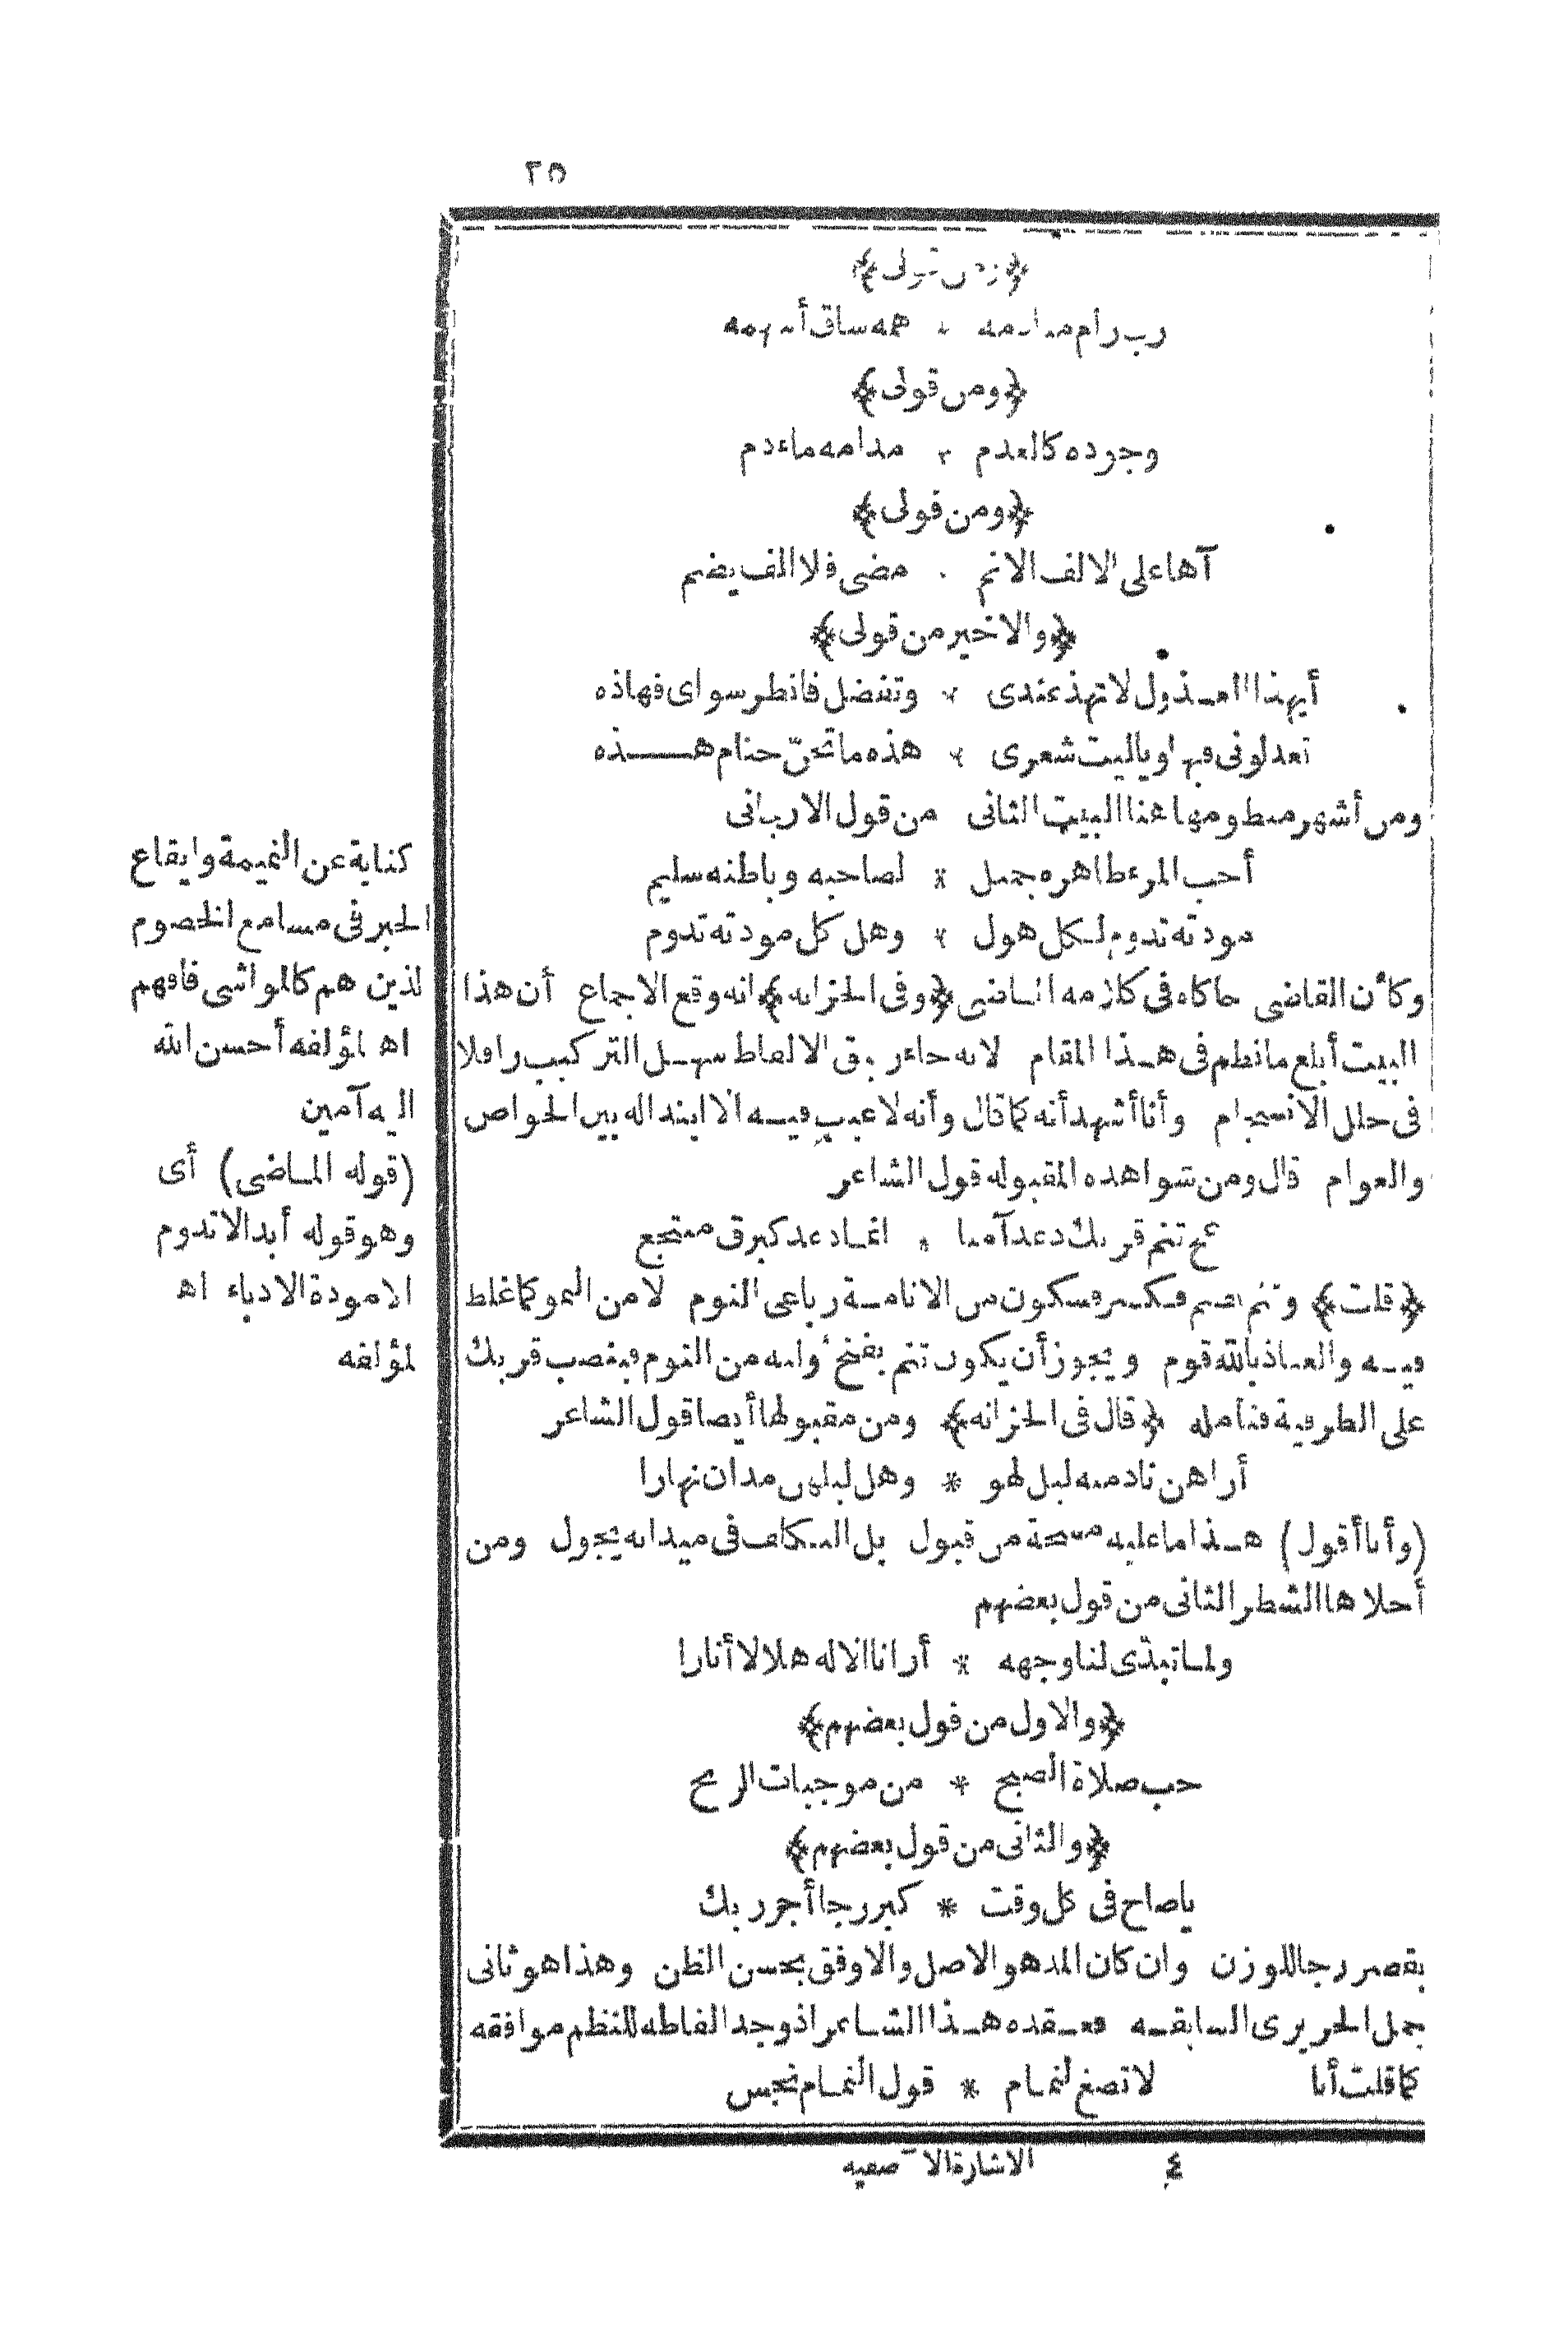 ٢٥
﴿ومن قولى﴾
رب رام مدامه * همه ساق أسهمه
﴿ومن قولى﴾
وجوده كالعدم * مدامه ماءدم
﴿ومن قولى﴾
آها على الالف الاتم * مضى فلا الف يضم
﴿والاخير من قولى﴾
أيهذا العـذول لاتهذ عندى * وتفضل فانظر سواى فهاذه
تعدلونى فيها وياليت شعرى * هذه ما تحنّ حنام هـــذه
ومن أشهر منظومها عنا البيت الثانى من قول الارجانى
أحب المرء ظاهره جميل * لصاحبه وباطنه سليم
مودته تدوم لـكل هول * وهل كل مودته تدوم
وكأن القاضى حاكاه فى كلامه المـاضى ﴿وفى الخزانه﴾ انه وقع الاجماع أن هذا
البيت أبلغ ما نظم فى هـذا المقام لانه جاء رقيق الالفاظ سهـل التركيب رافلا
فى حلل الانسجام وأنا أشهد أنه كما قال وأنه لا عيب فيـه الا ابتذاله بين الخواص
والعوام قال ومن شواهده المقبوله قول الشاعر
عج تنم قربك دعد آمنا * انمـا دعد كبرق منتجع
﴿قلت﴾ وتنم بضم فـكسر فسكون من الانامـة رباعى النوم لا من النمو كما غلط
فيـه والعياذ بالله قوم ويجوز أن يكون تنم بفتح أوله من النوم فينصب قربك
على الظرفية فتأمله ﴿قال فى الخزانه﴾ ومن مقبولها أيضا قول الشاعر
أراهن نادمنه ليل لهو * وهل ليلهن مدان نهارا
(وأنا أقول) هـذا ما عليه مسحة من قبول بل التـكلف فى ميدانه يجول ومن
أحلاها الشطر الثانى من قول بعضهم
ولمـا تبدّى لنا وجهه * أرانا الاله هلالا أنارا
﴿والاول من قول بعضهم﴾
حب صلاة الصبح * من موجبات الربح
﴿والثانى من قول بعضهم﴾
ياصاح فى كل وقت * كبر رجا أجر ربك
بقصر رجا للوزن وان كان المد هو الاصل والاوفق بحسن الظن وهذا هو ثانى
جمل الحريرى السابقـه فعـقده هـذا الشـاعر اذ وجد الفاظه للنظم موافقه
كما قلت أنا لا تصغ لنمـام * قول النمـام نجس
كناية عن النميمة وايقاع
الخبر فى مسامع الخصوم
لذين هم كالمواشى فافهم
اه لمؤلفه أحسن الله
اليه آمين
(قوله المـاضى) أى
وهو قوله أبدا لا تدوم
الا مودة الادباء اه
لمؤلفه
٤ الاشارة الآصفيه